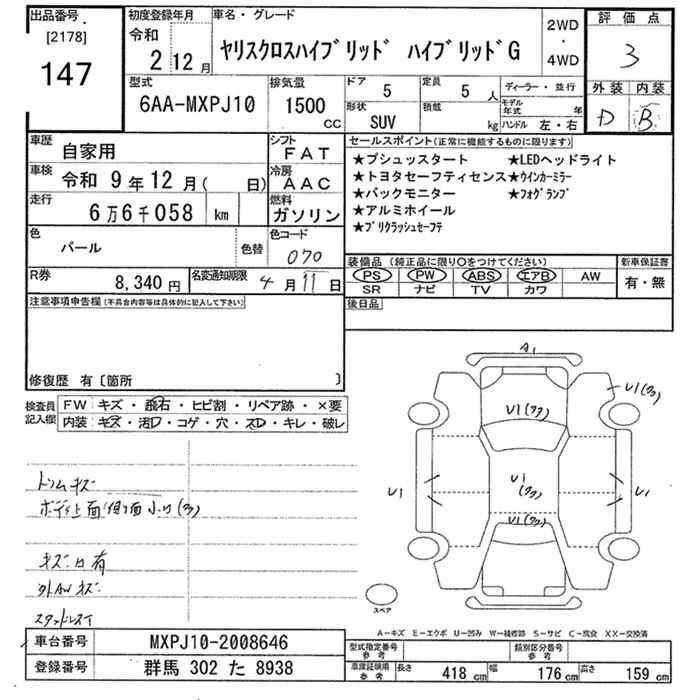 出品番号
[2178]
147
初度登録年月
令和
2 12 月
車名・グレード
ヤリスクロスハイブリッド ハイブリッドG
2WD
・
4WD
評価点
3
外装 内装
D B
型式
6AA-MXPJ10
排気量
1500
CC
ドア
5
定員
5 人
形状
SUV
積載
kg
ディーラー・並行
モデル年式
年
ハンドル 左・右
車歴
自家用
シフト
FAT
車検
令和 9年 12月( 日)
冷房
AAC
走行
6万6千058 km
燃料
ガソリン
色
パール
色替
色コード
070
R券
8,340 円
名変通知期限
4 月 11 日
セールスポイント(正常に機能するものに限ります)
★プシュッスタート ★LEDヘッドライト
★トヨタセーフティセンス★ウインカーミラー
★バックモニター ★フォグランプ
★アルミホイール
★プリクラッシュセーフテ
装備品(純正品に限り○をつけてください)
PS PW ABS エアB AW
SR ナビ TV カワ
新車保証書
有・無
後日品
注意事項申告欄(不具合内容等は具体的に記入して下さい)
修復歴 有〔箇所 〕
検査員
記入欄
FW キズ・飛石・ヒビ割・リペア跡・×要
内装 キズ・汚レ・コゲ・穴・スレ・キレ・破レ
トリムキズ
キズ凹有
外AWキズ
スタッドレスT
A1
U1(タタ)
U1(タ)
U1
U1
(タタ)
U1
U1(タタ)
スペア
A-キズ E-エクボ U-凹み W-補修跡 S-サビ C-腐食 XX-交換済
車台番号
MXPJ10-2008646
登録番号
群馬 302 た 8938
型式指定番号
参考
類別区分番号
参考
車庫証明用
参考
長さ 418 cm
幅 176 cm
高さ 159 cm